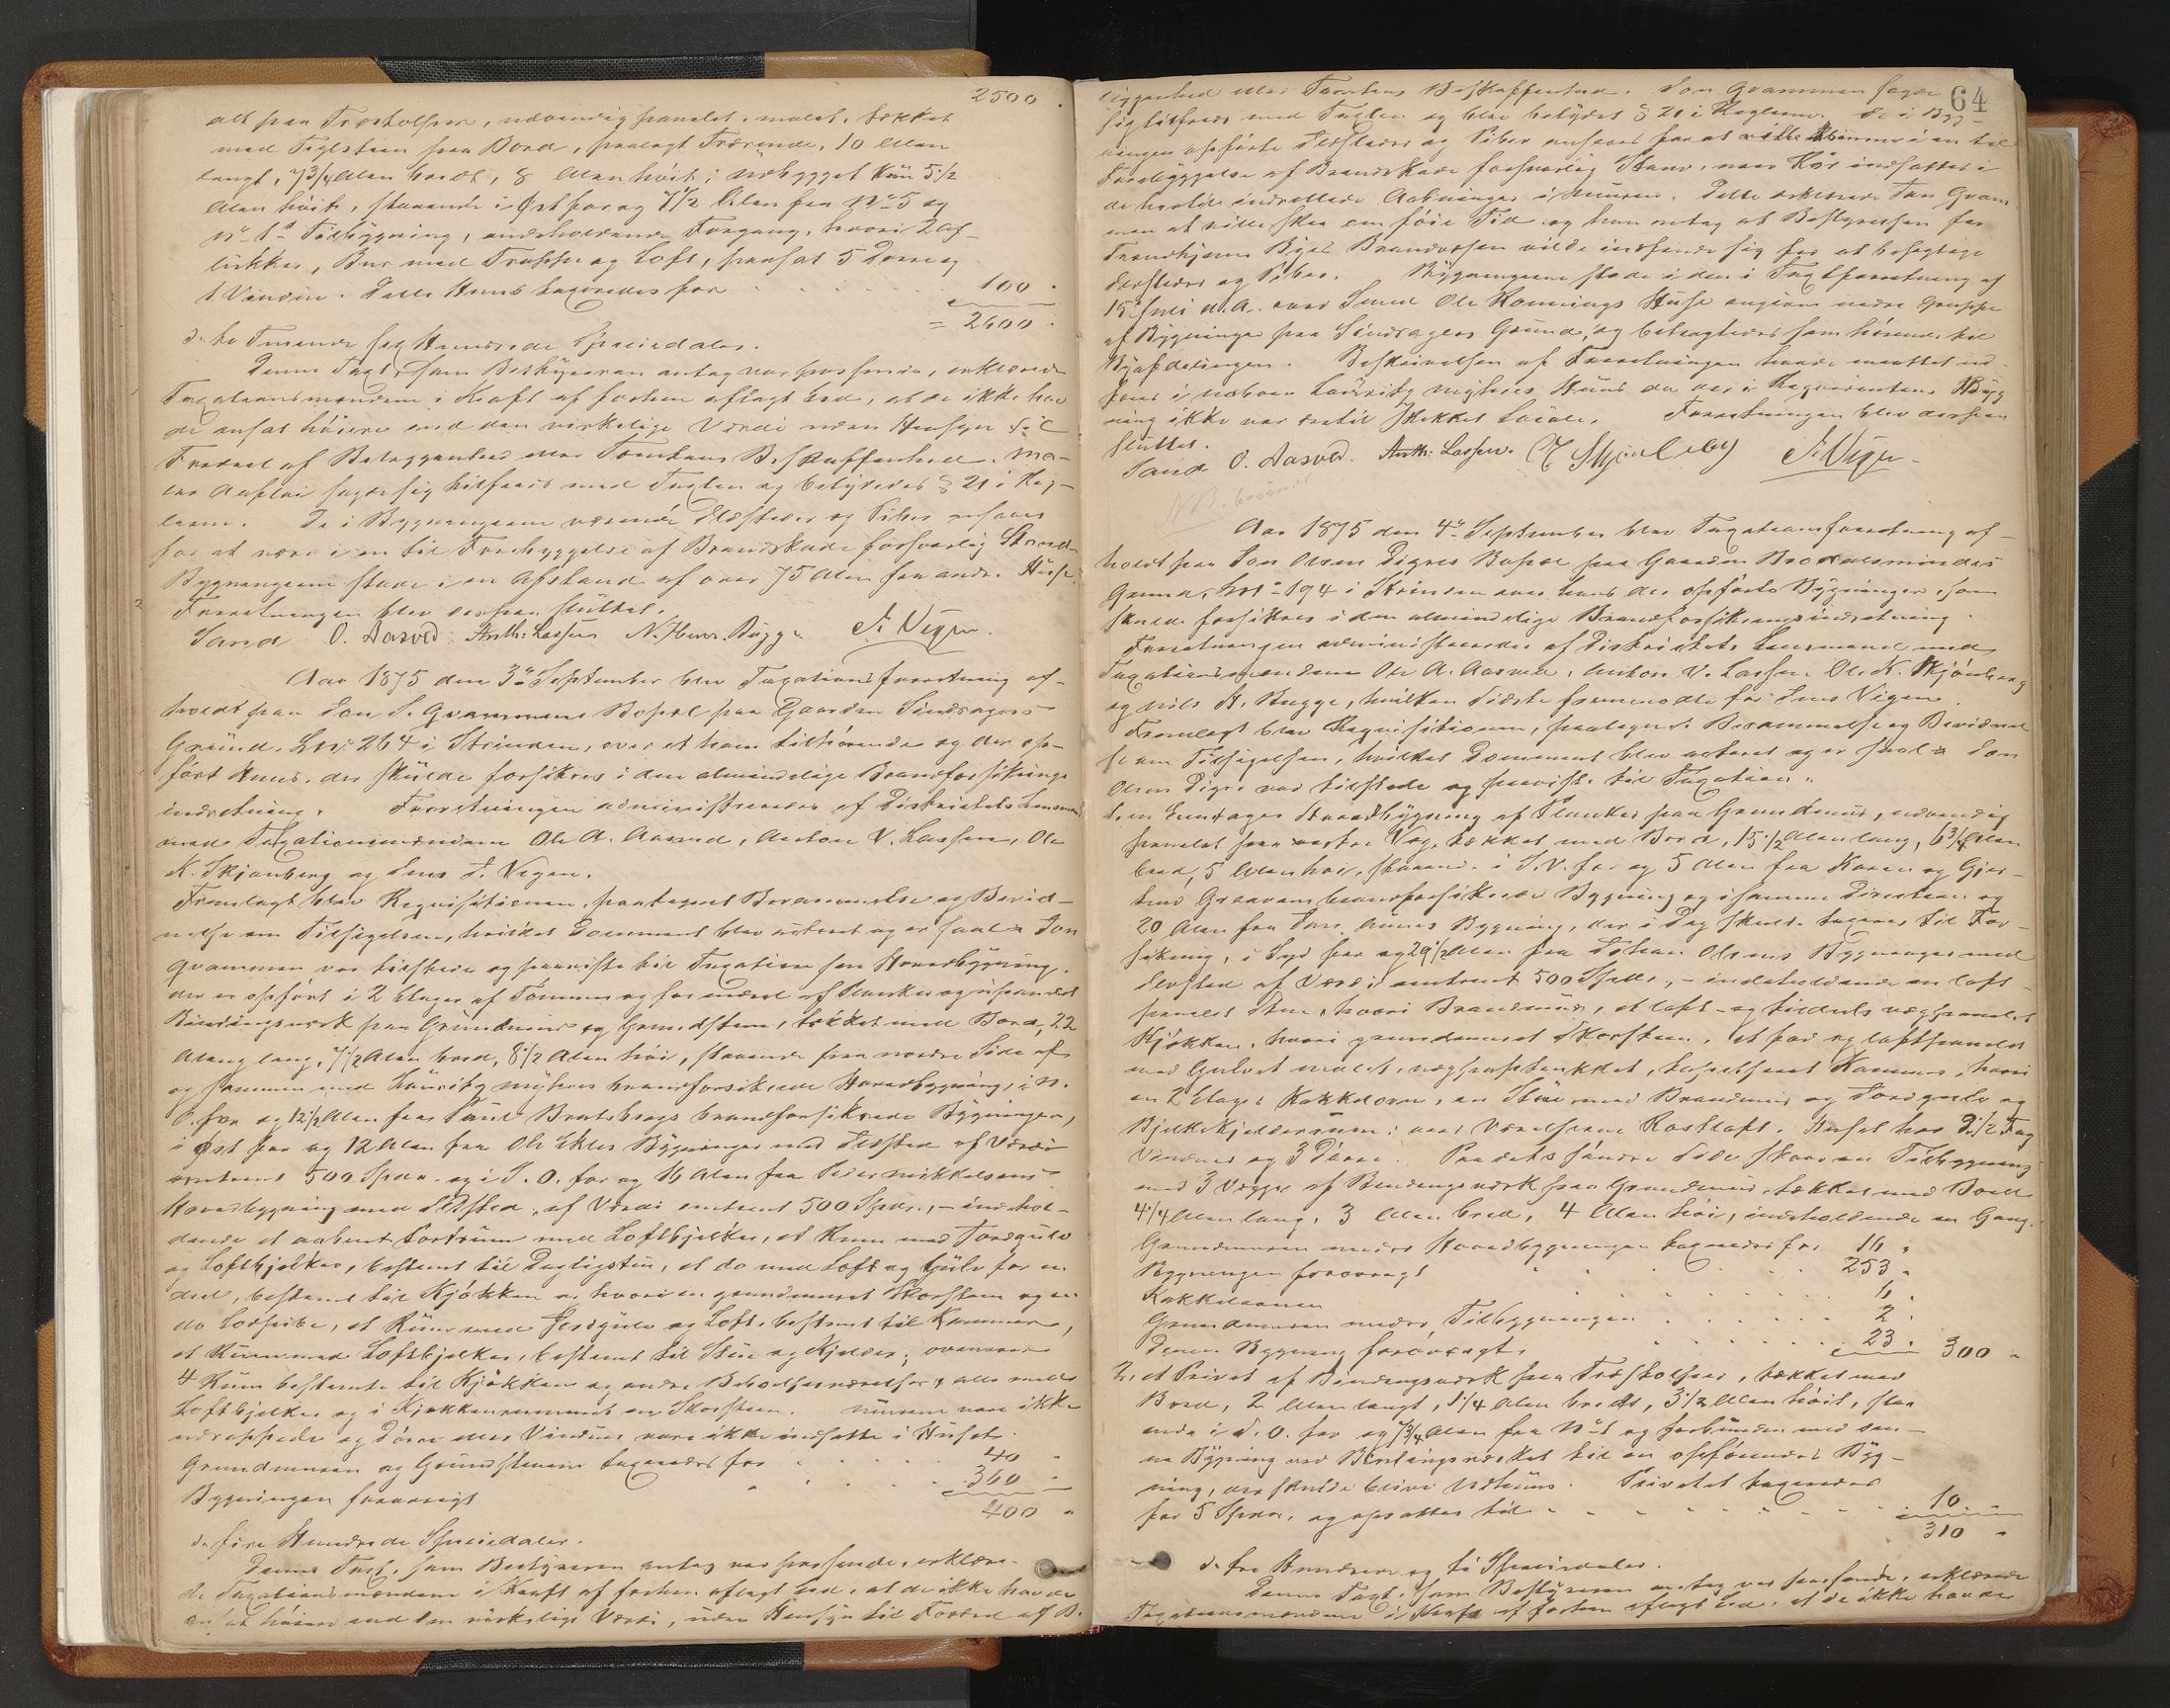 2500.
alt paa Træstolper, udvendig panelet, malet, tækket
med Taglsteen paa Bord, paalagt Trærende, 10 Alen
langt, 7 3/4 Alen bredt, 8 Alen høit, udbygget kun 5 1/2
Alen høit, staaende i Øst for og 7 1/2 Alen fra No 5 og
No 1s Tilbygning, indeholdende Forgang, hvori 2 af-
lukker, Bur med Trappe og Loft, forsat 5 Døre og
1 Vindue. Dette Huus taxeredes for 100.
= 2600.
d. to Tusinde sex Hundrede Speciedaler.
Denne Taxt, som Bestyreren antog var passende, erklærede
Taxationsmændene i Kraft af forhen aflagt Ed, at de ikke hav-
de ansat høiere end den virkelige Værdi uden Hensyn til
Fordeel af Beliggenhed eller Tomtens Beskaffenhed. Ma-
ler sagde sig tilfreds med Taxten og betydedes § 21 i Reg-
lerne. De i Bygningerne værende Ildsteder og Piber ansaaes
for at være i en til Forebyggelse af Brandskade forsvarlig Stand.
Bygningerne stode i en Afstand af over 75 Alen fra andre Huse.
Forretningen blev derpaa sluttet.
Sand O. Aasved. Anth: Lassen N. Henr. Bugge J. Vigen.
Aar 1875 den 3die September blev Taxationsforretning af-
holdt paa Jon S. Gvammens Bopæl paa Gaarden Sindsagers
Grund, Lno 264 i Strinden, over et ham tilhørende og der op-
ført Huus, der skulde forsikres i den almindelige Brandforsikrings-
indretning. Forretningen administreredes af Distriktets Lensmand
med Taxationsmændene Ole A. Aasved, Anton V. Lassen, Ole
K. Skjønberg og Jens J. Vigen.
Fremlagt blev Requisitionen, paategnet Berammelse og Bevid-
nelse om Tilsigelsen, hvilket Document blev acteret og er saal. Jon
Gvammen var tilstede og paaviste til Taxation sin Hovedbygning,
der er opført i 2 Etager af Tømmer og for endeel af Planker og upanelet
Bindingsværk paa Grundmuur og Grundsteen, tækket med Bord, 22
Alen lang, 7 1/2 Alen bred, 8 1/2 Alen høi, staaende paa nordre Side af
og sammen med Lauritz Myhres brandforsikrede Hovedbygning, i N.
O. for og 12 1/2 Alen fra Paul Bratsbergs brandforsikrede Bygninger,
i Øst for og 12 Alen fra Ole Ekles Bygninger med Ildsted af Værdi
omtrent 500 Spdr. og i S. O. for og 16 Alen fra Peder Mikkelsens
Hovedbygning med Ildsted, af Værdi omtrent 500 Spdr., – indehol-
dende et aabent Portrum med Loftbjelker, et Rum med Jordgulv
og Loftbjelker, bestemt til Dagligstue, et do med Loft og Gulv for en
deel, bestemt til Kjøkken og hvori en grundmuret Skorsteen og en
do Lodpibe, et Rum med Jordgulv og Loft, bestemt til Kammer,
et Rum med Loftbjelker, bestemt til Stue og Kjelder; ovenover
4 Rum bestemte til Kjøkken og andre Beboelsesværelser, alle med
Loftbjelker og i Kjøkkenrummet en Skorsteen. Murene vare ikke
udrappede og Døre eller Vinduer vare ikke indsatte i Huset.
Grundmuren og Grundstenene taxeredes for 40
Bygningen forøvrigt 360
400
d. fire Hundrede Speciedaler.
Denne Taxt, som Bestyreren antog var passende, erklære-
de Taxationsmændene i Kraft af forhen aflagt Ed, at de ikke havde
ansat høiere end den virkelige Værdi, uden Hensyn til Fordeel af B.
64
liggenhed eller Tomtens Beskaffenhed. Jon Gvammen sagde
sig tilfreds med Taxten og blev betydet § 21 i Reglerne. De i Byg-
ningen opførte Ildsteder og Piber ansaaes for at ville komme i en til
Forebyggelse af Brandskade forsvarlig Stand, naar Rør indsattes i
de hertil indrettede Aabninger i Muren. Dette erklærede Jon Gvam-
men at ville skee om føie Tid og han antog at Bestyrelsen for
Trondhjems Byes Brandvæsen vilde indfinde sig for at besigtige
Ildsteder og Piber. Bygningerne stode i den i Taxtforretning af
15 Juni d. A. over Smed Ole Rønnings Huse angivne nedre Gruppe
af Bygninger paa Sindsagers Grund, og betragtedes som hørende til
Byafdelingen. Beskrivelsen af Forretningen havde maattet ud-
føres i naboen Lauritz Myhres Huus da der i Requirentens Byg-
ning ikke var dertil skikket Locale. Forretningen blev derpaa
sluttet.
Sand O. Aasved. Anth: Lassen. O K Skjønberg J. Vigen
Aar 1875 den 4de September blev Taxationsforretning af-
holdt paa Jon Olsen Digres Bopæl paa Gaarden Brodalsmindes
Grund, Lno 194 i Strinden over hans der opførte Bygninger, som
skulde forsikres i den almindelige Brandforsikringsindretning.
Forretningen administreredes af Distriktets Lensmand med
Taxationsmændene Ole A. Aasved, Anton V. Lassen, Ole K. Skjønberg
og Nils H. Bugge, hvilken sidste fremmødte for Jens Vigen.
Fremlagt blev Requisitionen, paategnet Berammelse og Bevidnel-
se om Tilsigelsen, hvilket Document blev acteret og er saal. Jon
Olsen Digre var tilstede og paaviste til Taxation:
1, en Eenetages Hovedbygning af Planker paa Grundmuur, udvendig
panelet paa vestre Væg, tækket med Bord, 15 1/2 Alen lang, 6 3/4 Alen
bred, 5 Alen høi, staaende i S.V. for og 5 Alen fra Karen og Gjer-
trud Graavens brandforsikrede Bygning og i samme Direction og
20 Alen fra Jon Aunes Bygning, der i Dag skulde taxeres til For-
sikring, i Syd for og 29 1/2 Alen fra Johan Olsens Bygninger med
Ildsted af Værdi omtrent 500 Spdlr, – indeholdende en loft-
panelet Stue, hvori Brandmuur, et loft- og tildeels vægpanelet
Kjøkken, hvori grundmuret Skorsteen, et for og loftpanelet
med Gulvet malet, vægpaptrukket, tapetseret Kammer, hvori
en 2 Etages Kakkelovn, en Stue med Brandmuur og Jordgulv og
Bjelkekjelderrum; over Værelserne Rostloft. Huset har 9 1/2 Fag
Vinduer og 3 Døre. Paa dets søndre Side staar en Tilbygning
med 3 Vægge af Bindingsværk paa Grundmuur, tækket med Bord
4 1/4 Alen lang, 3 Alen bred, 4 Alen høi, indeholdende en Gang.
Grundmuren under Hovedbygningen taxeredes for 16.
Bygningen forøvrigt 253.
Kakkelovnen 6.
Grundmuren under Tilbygningen 2.
Denne Bygning forøvrigt 23. 300
2, et Privet af Bindingsværk paa Træstolper, tækket med
Bord, 2 Alen langt, 1 1/4 Alen bredt, 3 1/2 Alen høit, staa-
ende i S. O. for og 7 3/4 Alen fra No 1 og forbunden med sam-
me Bygning ved Bindingsværket til en opførendes Byg-
ning, der skulde blive Udhuus. Privetet taxeredes
for 5 Spdr, og opsattes til 10.
310
d. tre Hundrede og ti Speciedaler.
Denne Taxt, som Bestyreren antog var passende, erklærede
Taxationsmændene i Kraft af forhen aflagt Ed, at de ikke havde